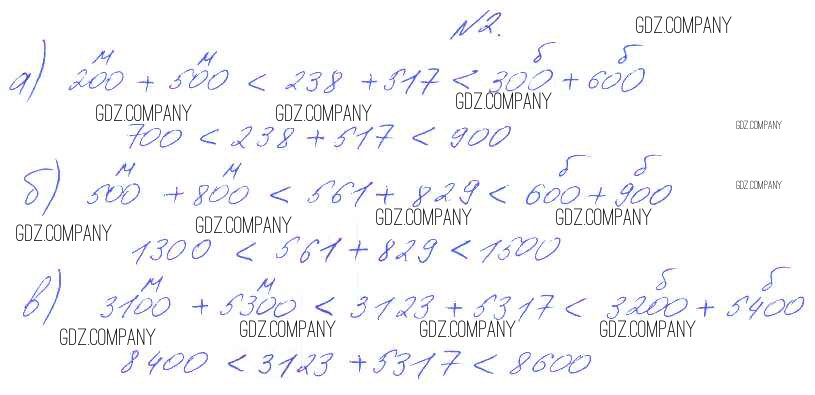 №2.
GDZ.COMPANY
м м б б
а) 200 + 500 < 238 + 517 < 300 + 600
GDZ.COMPANY GDZ.COMPANY GDZ.COMPANY
700 < 238 + 517 < 900
GDZ.COMPANY
м м б б
б) 500 + 800 < 561 + 829 < 600 + 900
GDZ.COMPANY
GDZ.COMPANY GDZ.COMPANY GDZ.COMPANY GDZ.COMPANY
1300 < 561 + 829 < 1500
м м б б
в) 3100 + 5300 < 3123 + 5317 < 3200 + 5400
GDZ.COMPANY GDZ.COMPANY GDZ.COMPANY GDZ.COMPANY
8400 < 3123 + 5317 < 8600